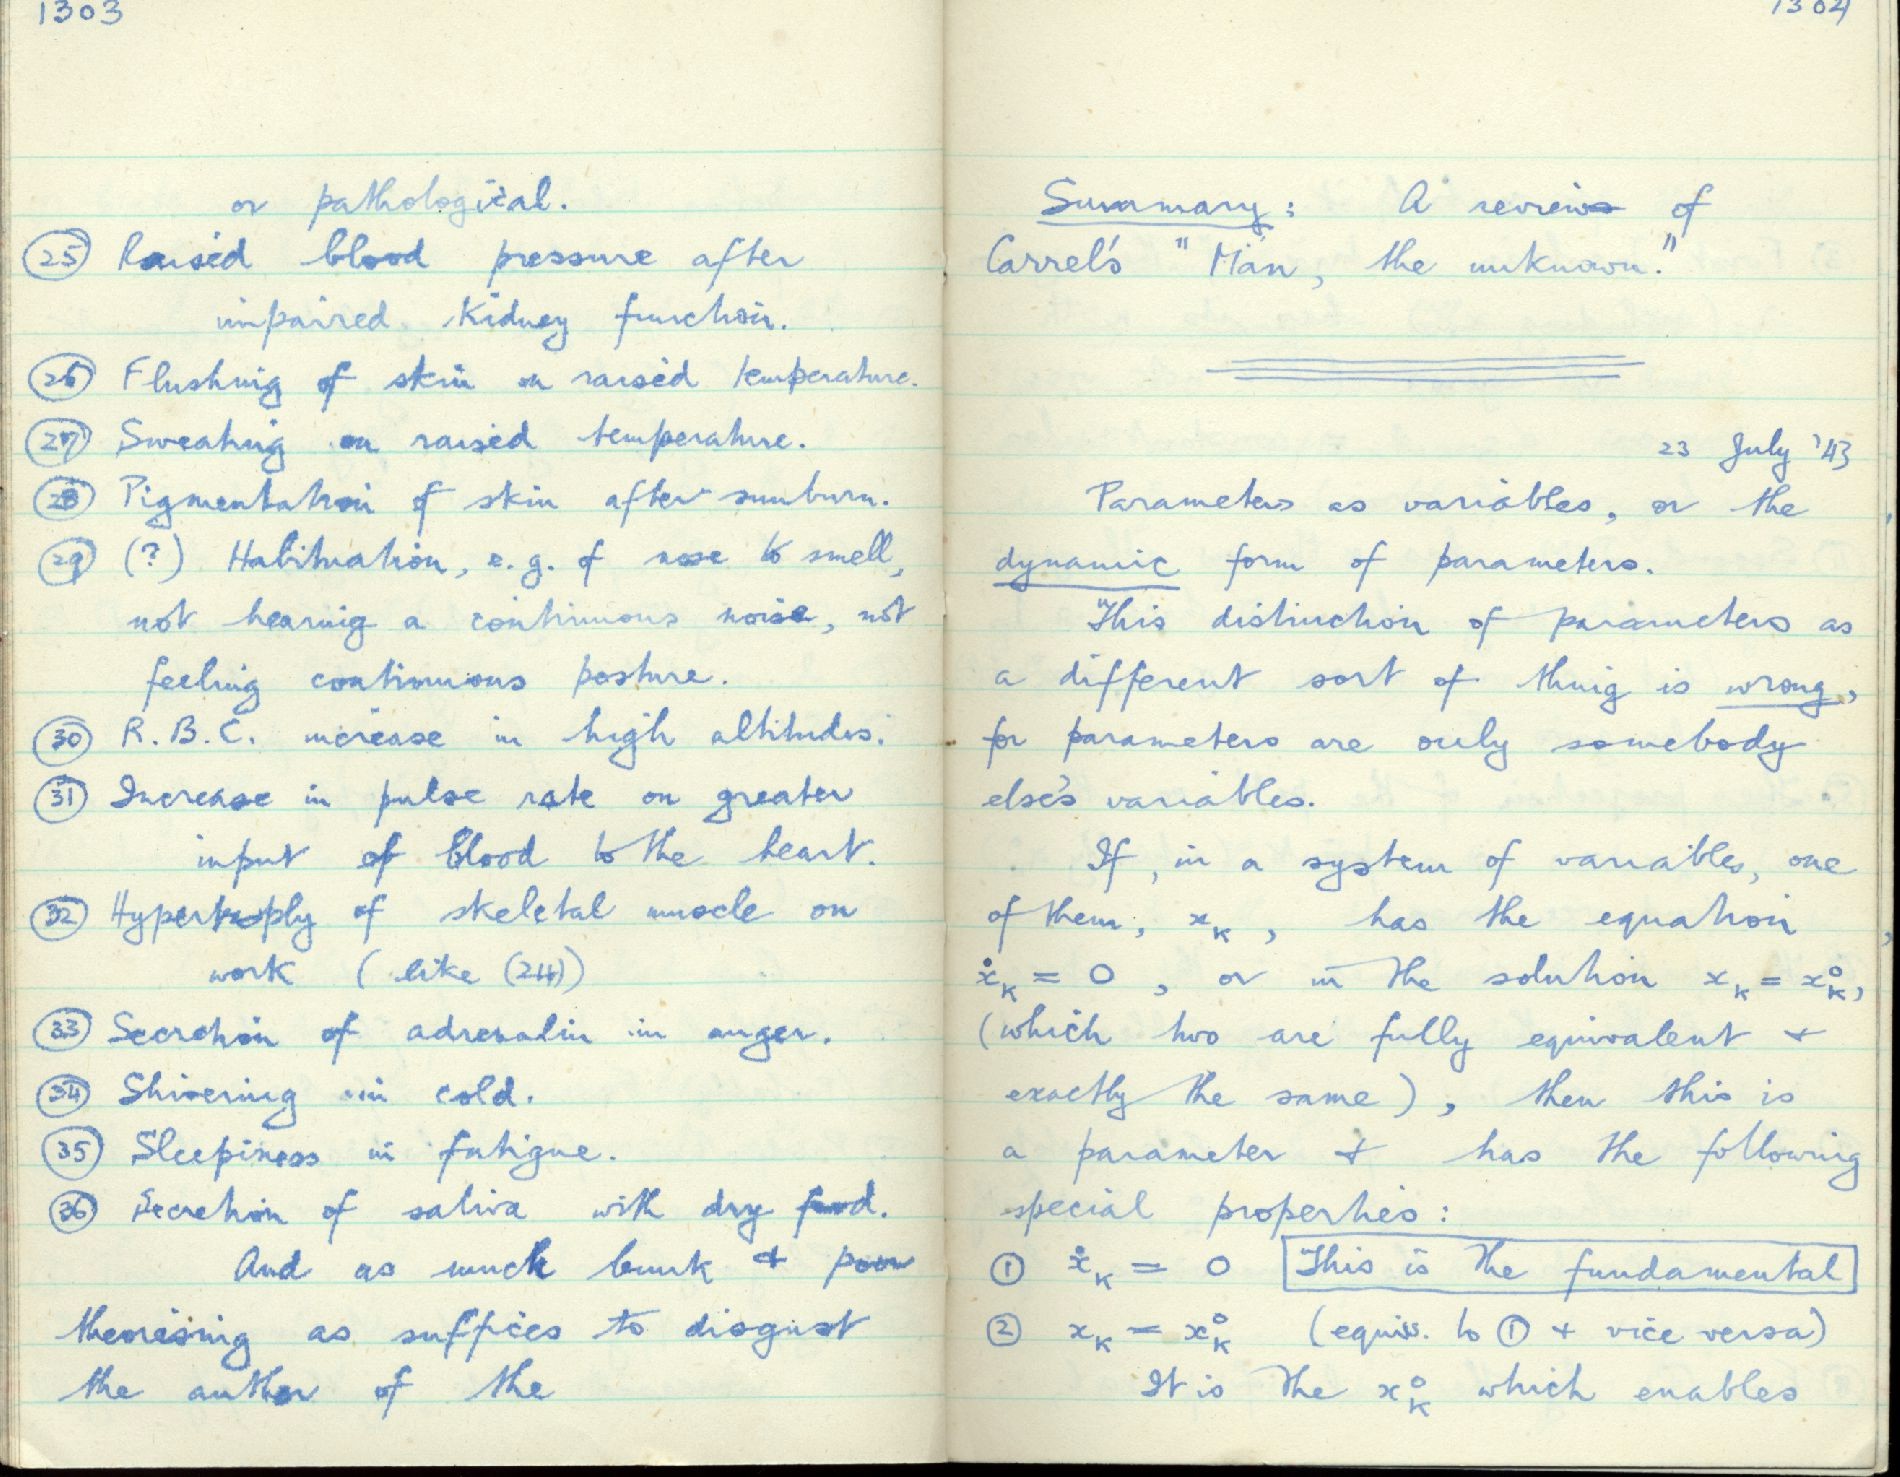 1303
or pathological.
(25) Raised blood pressure after
impaired kidney function.
(26) Flushing of skin on raised temperature.
(27) Sweating on raised temperature.
(28) Pigmentation of skin after sunburn.
(29) (?) Habituation, e.g. of nose to smell,
not hearing a continuous noise, not
feeling continuous posture.
(30) R.B.C. increase in high altitudes.
(31) Increase in pulse rate on greater
input of blood to the heart.
(32) of skeletal muscle on
work (like (24))
(33) Secretion of adrenalin in anger.
(34) Shivering in cold.
(35) Sleepiness in fatigue.
(36) Secretion of saliva with dry food.
And as much bunk & poor
theorising as suffices to disgust
the author of the
1304
Summary: A review of
Carrel's "Man, the unknown."
23 July '43
Parameters as variables, or the
dynamic form of parameters.
This distinction of parameters as
a different sort of thing is wrong,
for parameters are only somebody
else's variables.
If, in a system of variables, one
of them, x_K, has the equation
ẋ_K = 0, or in the solution x_K = x_K⁰,
(which two are fully equivalent &
exactly the same), then this is
a parameter & has the following
special properties:
① ẋ_K = 0 This is the fundamental
② x_K = x_K⁰ (equiv. to ① & vice versa)
It is the x_K⁰ which enables